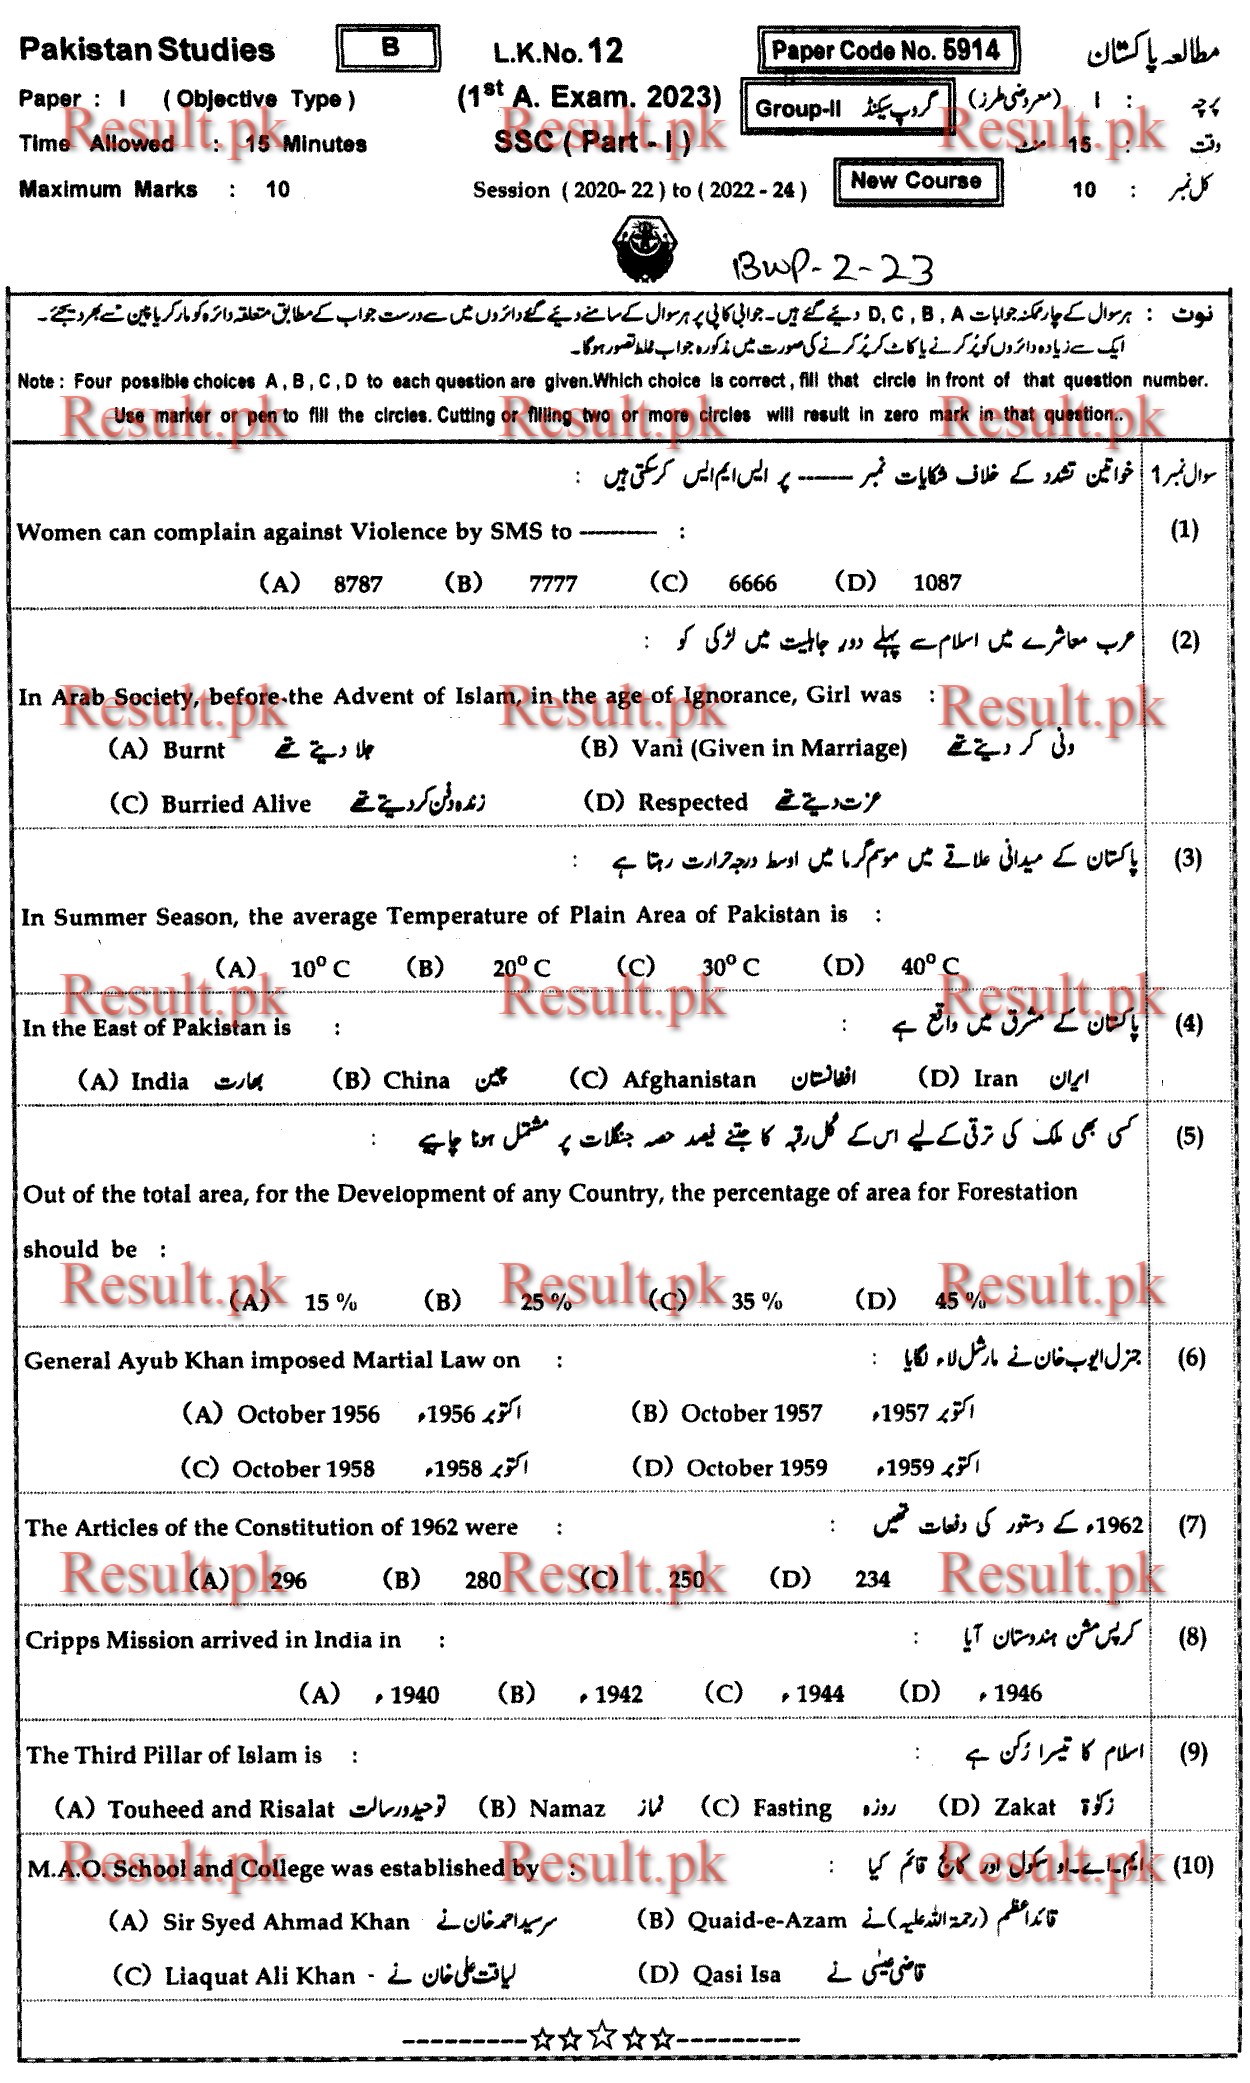 Pakistan Studies B L.K.No. 12 Paper Code No. 5914 مطالعہ پاکستان
Paper : I ( Objective Type ) (1st A. Exam. 2023) Group-II گروپ سیکنڈ پرچہ : I (معروضی طرز)
Time Allowed : 15 Minutes SSC ( Part - I ) وقت : 15 منٹ
Maximum Marks : 10 Session ( 2020- 22 ) to ( 2022 - 24 ) New Course کل نمبر : 10
BWP-2-23
نوٹ : ہر سوال کے چار ممکنہ جوابات D, C , B , A دیئے گئے ہیں۔ جوابی کاپی پر ہر سوال کے سامنے دیئے گئے دائروں میں سے درست جواب کے مطابق متعلقہ دائرہ کو مارکر یا پین سے بھر دیجئے۔
ایک سے زیادہ دائروں کو پُر کرنے یا کاٹ کر پُر کرنے کی صورت میں مذکورہ جواب غلط تصور ہوگا۔
Note : Four possible choices A , B , C , D to each question are given.Which choice is correct , fill that circle in front of that question number.
Use marker or pen to fill the circles. Cutting or filling two or more circles will result in zero mark in that question..
سوال نمبر 1 خواتین تشدد کے خلاف شکایات نمبر ------ پر ایس ایم ایس کرسکتی ہیں :
Women can complain against Violence by SMS to -------- : (1)
(A) 8787 (B) 7777 (C) 6666 (D) 1087
عرب معاشرے میں اسلام سے پہلے دور جاہلیت میں لڑکی کو : (2)
In Arab Society, before the Advent of Islam, in the age of Ignorance, Girl was :
(A) Burnt جلا دیتے تھے (B) Vani (Given in Marriage) ونی کر دیتے تھے
(C) Burried Alive زندہ دفن کر دیتے تھے (D) Respected عزت دیتے تھے
پاکستان کے میدانی علاقے میں موسم گرما میں اوسط درجہ حرارت رہتا ہے : (3)
In Summer Season, the average Temperature of Plain Area of Pakistan is :
(A) 10⁰ C (B) 20⁰ C (C) 30⁰ C (D) 40⁰ C
In the East of Pakistan is : پاکستان کے مشرق میں واقع ہے : (4)
(A) India بھارت (B) China چین (C) Afghanistan افغانستان (D) Iran ایران
کسی بھی ملک کی ترقی کے لیے اس کے کُل رقبہ کا جتنے فیصد حصہ جنگلات پر مشتمل ہونا چاہیے : (5)
Out of the total area, for the Development of any Country, the percentage of area for Forestation
should be :
(A) 15 % (B) 25 % (C) 35 % (D) 45 %
General Ayub Khan imposed Martial Law on : جنرل ایوب خان نے مارشل لاء لگایا : (6)
(A) October 1956 اکتوبر 1956ء (B) October 1957 اکتوبر 1957ء
(C) October 1958 اکتوبر 1958ء (D) October 1959 اکتوبر 1959ء
The Articles of the Constitution of 1962 were : 1962ء کے دستور کی دفعات تھیں : (7)
(A) 296 (B) 280 (C) 250 (D) 234
Cripps Mission arrived in India in : کرپس مشن ہندوستان آیا : (8)
(A) ء 1940 (B) ء 1942 (C) ء 1944 (D) ء 1946
The Third Pillar of Islam is : اسلام کا تیسرا رُکن ہے : (9)
(A) Touheed and Risalat توحید و رسالت (B) Namaz نماز (C) Fasting روزہ (D) Zakat زکوٰۃ
M.A.O. School and College was established by : ایم۔اے۔او سکول اور کالج قائم کیا : (10)
(A) Sir Syed Ahmad Khan سر سید احمد خان نے (B) Quaid-e-Azam قائد اعظم (رحمۃ اللہ علیہ) نے
(C) Liaquat Ali Khan - لیاقت علی خان نے (D) Qasi Isa قاضی عیسیٰ نے
Result.pk Result.pk Result.pk
Result.pk Result.pk Result.pk
Result.pk Result.pk Result.pk
Result.pk Result.pk Result.pk
Result.pk Result.pk Result.pk
Result.pk Result.pk Result.pk
Result.pk Result.pk Result.pk